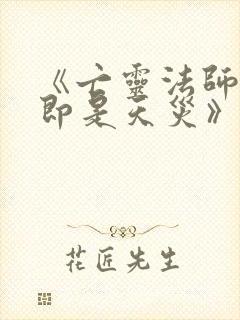 《亡靈法師
即是天災》
花匠先生